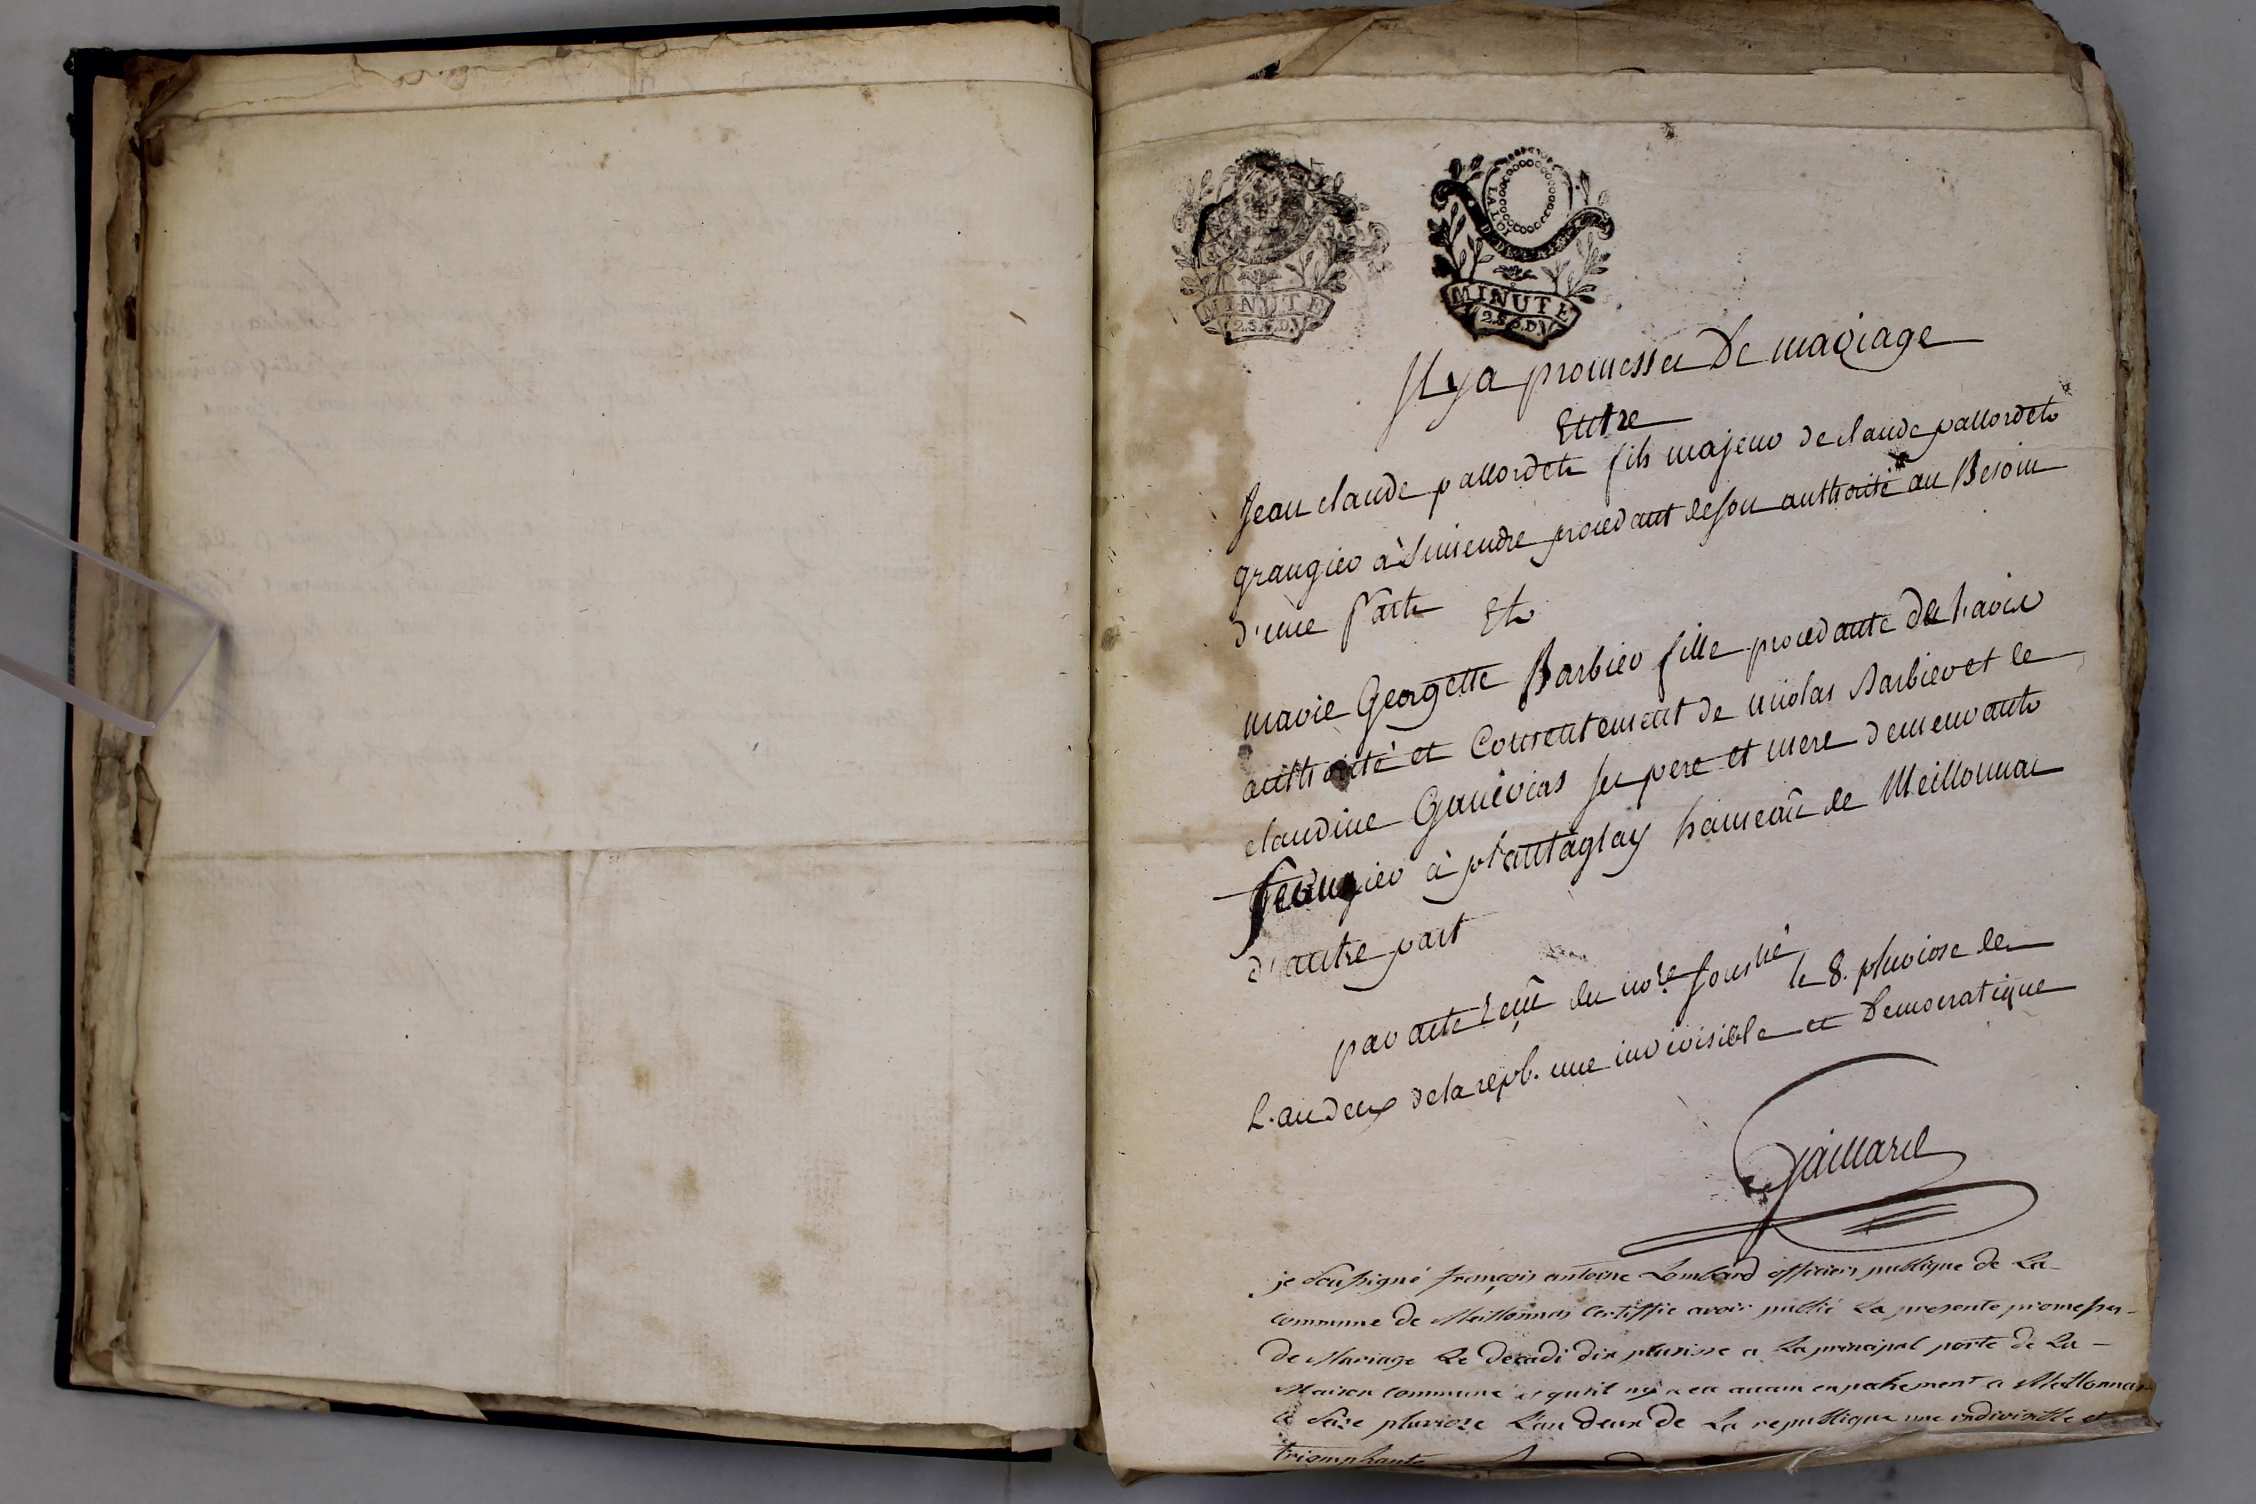 LA LOI
MINUTE
2.S.6.D.
MINUTE
2.S.6.D.
Il y a promesse De mariage
Entre
Jean claude pallordet fils majeur de claude pallordet
grangier à Simendre procedant de son authorité au Besoin
d'une Part Et
marie Georgette Barbier fille procedante De l'avis
authorité et Consentement de nicolas Barbier et de
claudine ses pere et mere demeurants
à plantaglay hameau de Meillonnas
d'autre part
par acte Reçu du no.re soussé le 8. pluviose de
L'an deux de la repb. une indivisible et Democratique
Gaillard
je Soussigné françois antoine Lombard officier publique de La
commune de Meillonnas Certiffie avoir publié La presente promesse
de Mariage Le decadi dix pluviose a La principal porte de La
Maison commune et qu'il ny a eu aucun enpechement a Meillonnas
Ce seize pluviose L'an deux de La republique une indivisible et
triomphante